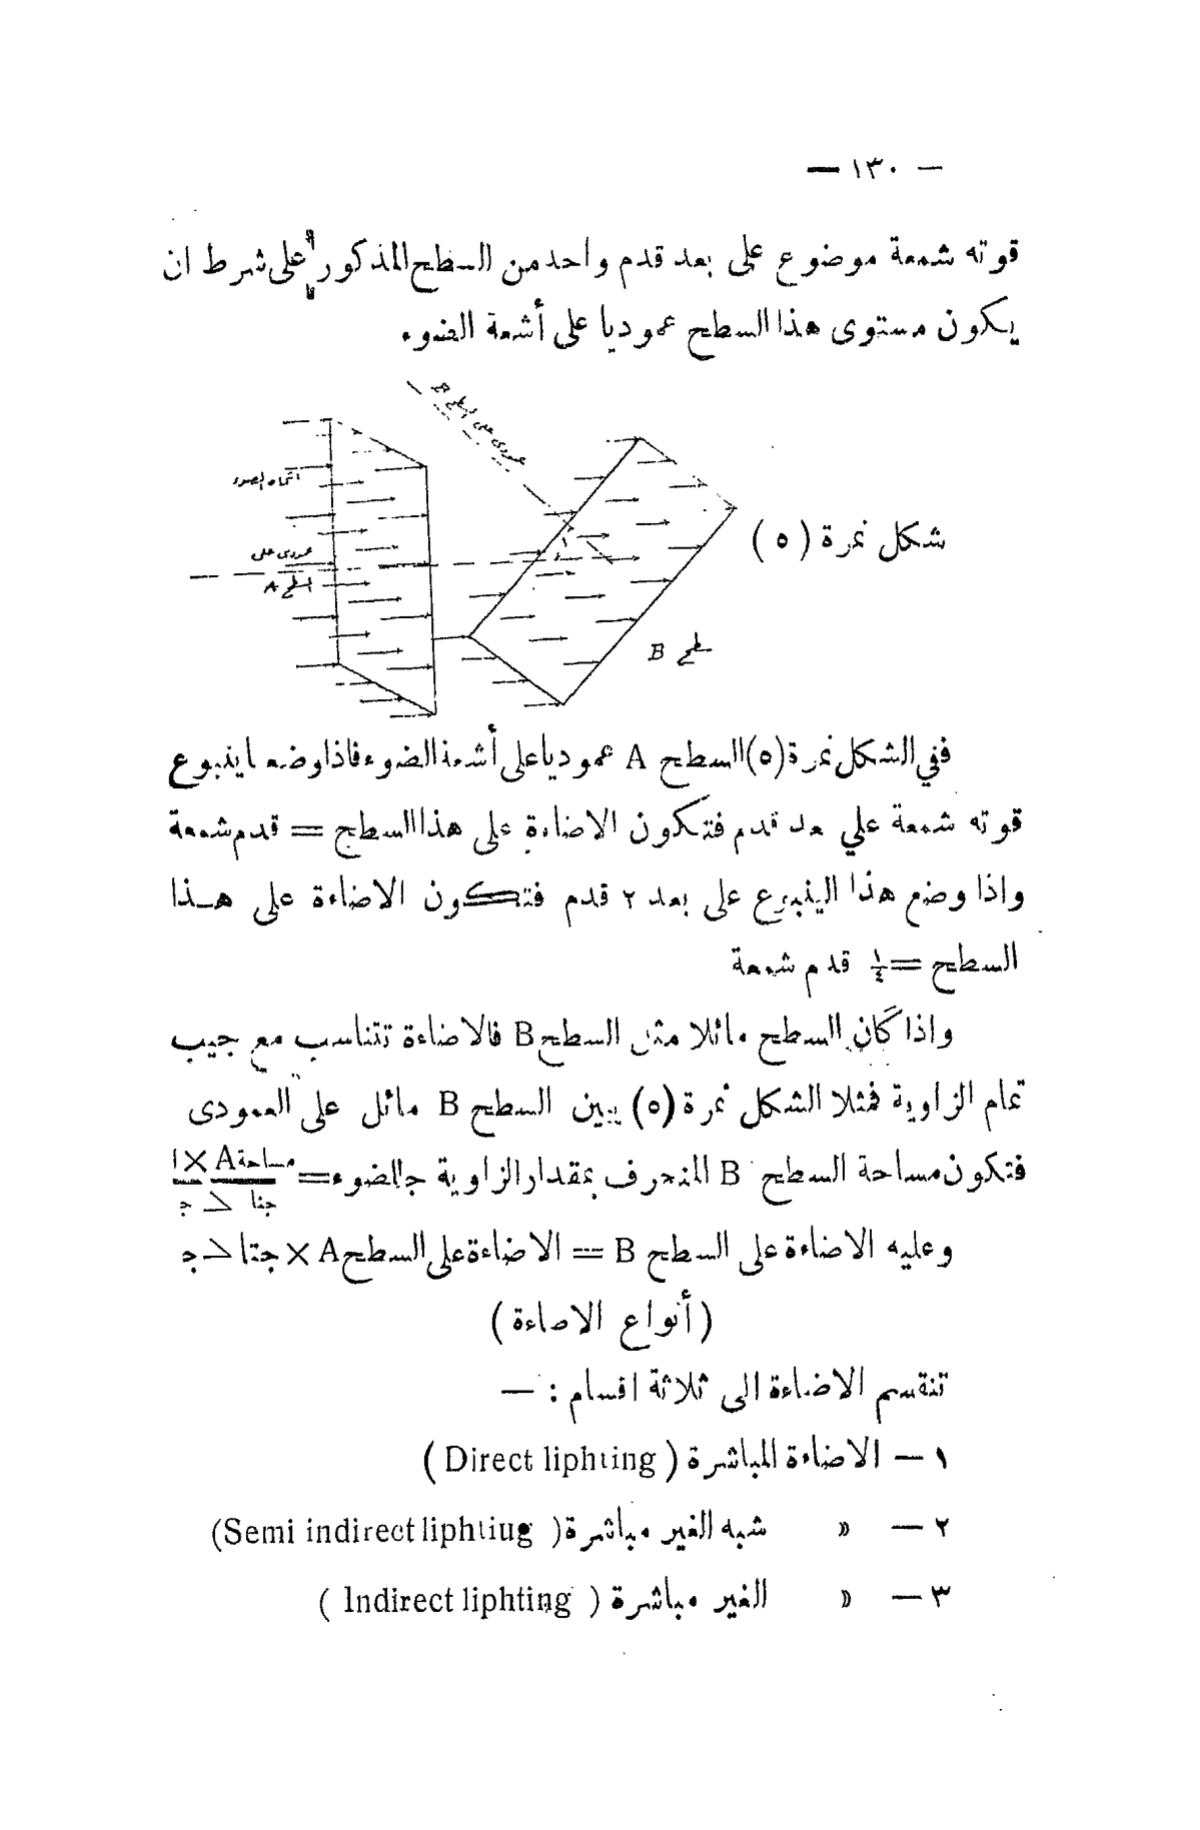 — ١٣٠ —
قوته شمعة موضوع على بعد قدم واحد من السطح المذكور على شرط ان
يكون مستوى هذا السطح عموديا على أشعة الضوء
عمودى على السطح B
اتجاه الضوء
عمودى على
السطح A
شكل نمرة (٥)
سطح B
ففي الشكل نمرة (٥) السطح A عموديا على أشعة الضوء فاذا وضعنا ينبوع
قوته شمعة علي بعد قدم فتكون الاضاءة على هذا السطح = قدم شمعة
واذا وضع هذا الينبوع على بعد ٢ قدم فتكون الاضاءة على هـذا
السطح = ١/٤ قدم شمعة
واذا كان السطح مائلا مثل السطح B فالاضاءة تتناسب مع جيب
تمام الزاوية فمثلا الشكل نمرة (٥) يبين السطح B مائل على العمودى
فتكون مساحة السطح B المنحرف بمقدار الزاوية ج الضوء = مساحة A × ١ / جتا < ج
وعليه الاضاءة على السطح B = الاضاءة على السطح A × جتا < ج
(أنواع الاضاءة)
تنقسم الاضاءة الى ثلاثة اقسام : —
١ — الاضاءة المباشرة ( Direct liphting )
٢ — » شبه الغير مباشرة ( Semi indirect liphtiug)
٣ — » الغير مباشرة ( Indirect liphting )